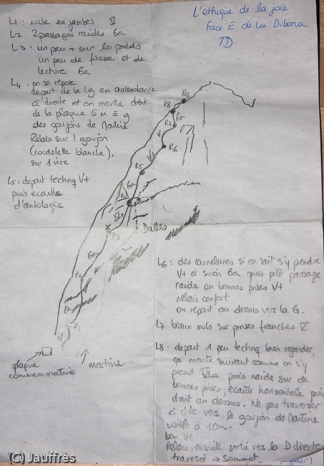 L'éthique de la joie
Face E de la Dibona
TD
L1 : mise en jambes V
L2 2 passages raides 6a
L3 : un peu + sur les pieds
un peu de finesse et de
lecture 6a
L4 on se repose
départ de la L3 en ascendance
à droite et on monte droit
de la plaque 5 m à g
des goujons de Martine
Relais sur 1 goujon
(cordelette blanche),
L5 : départ techniq V+
puis écaille
d'anthologie
L6 : des cannelures si on sait s'y prendre
V+ et sinon 6a puis petit passage
raide en bonnes prises V+
relais confort
on repart au dessus vers la G.
L7 beau mur sur prises franches V
L8 : départ 1 peu techniq bien regarder,
ça monte suivant comme on s'y
prend puis raide sur de
bonnes prises, écaille horizontale puis
droit au dessus. Ne pas traverser
à dte vers le goujon de Martine
à 10m.
V+
Relais, ensuite sortie vers la D directe
traversée → Sommet
Dalles
plaque
commémorative
martine
R8
R6
R5
(C) Jauffrès